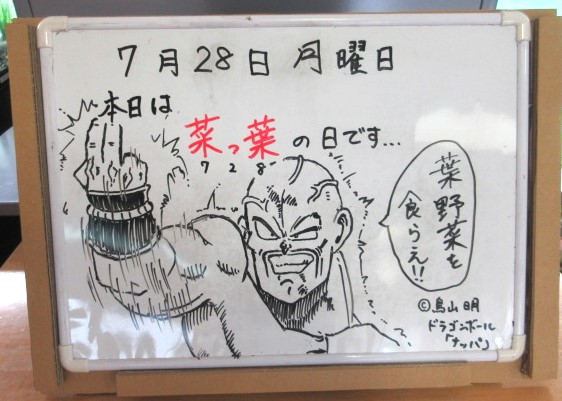 7月28日 月曜日
本日は
菜っ葉の日です...
7 2 8
葉野菜を
食らえ!!
©鳥山明
ドラゴンボール
「ナッパ」